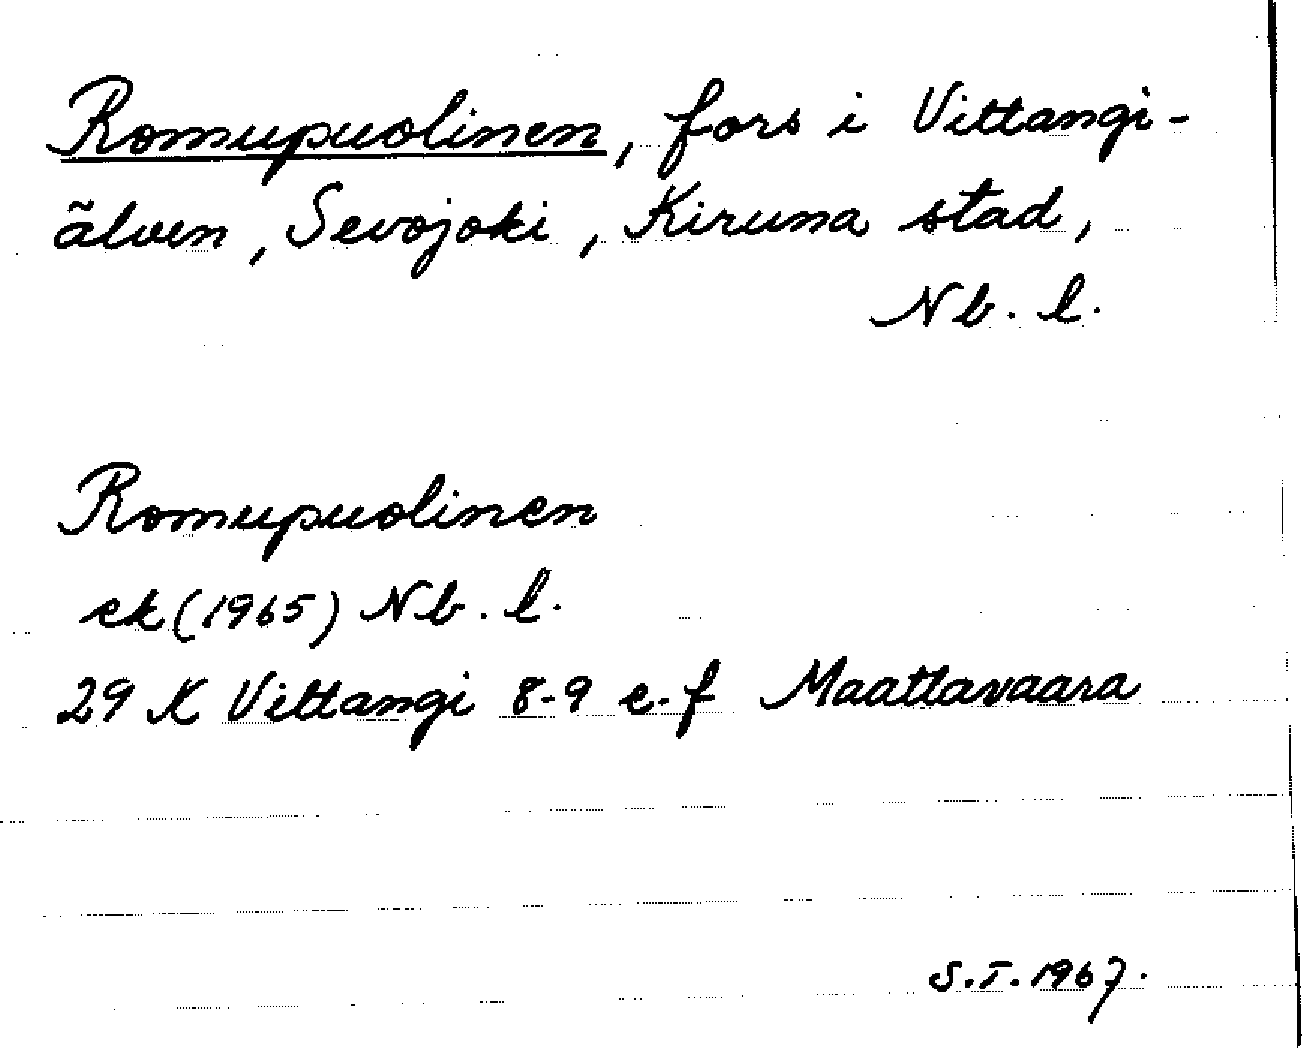 Romupuolinen, fors i Vittangi-
älven, Sevojoki, Kiruna stad,
Nb. l.
Romupuolinen
ek (1965) Nb. l.
29 K Vittangi 8-9 e-f Maattavaara
S.T. 1967.